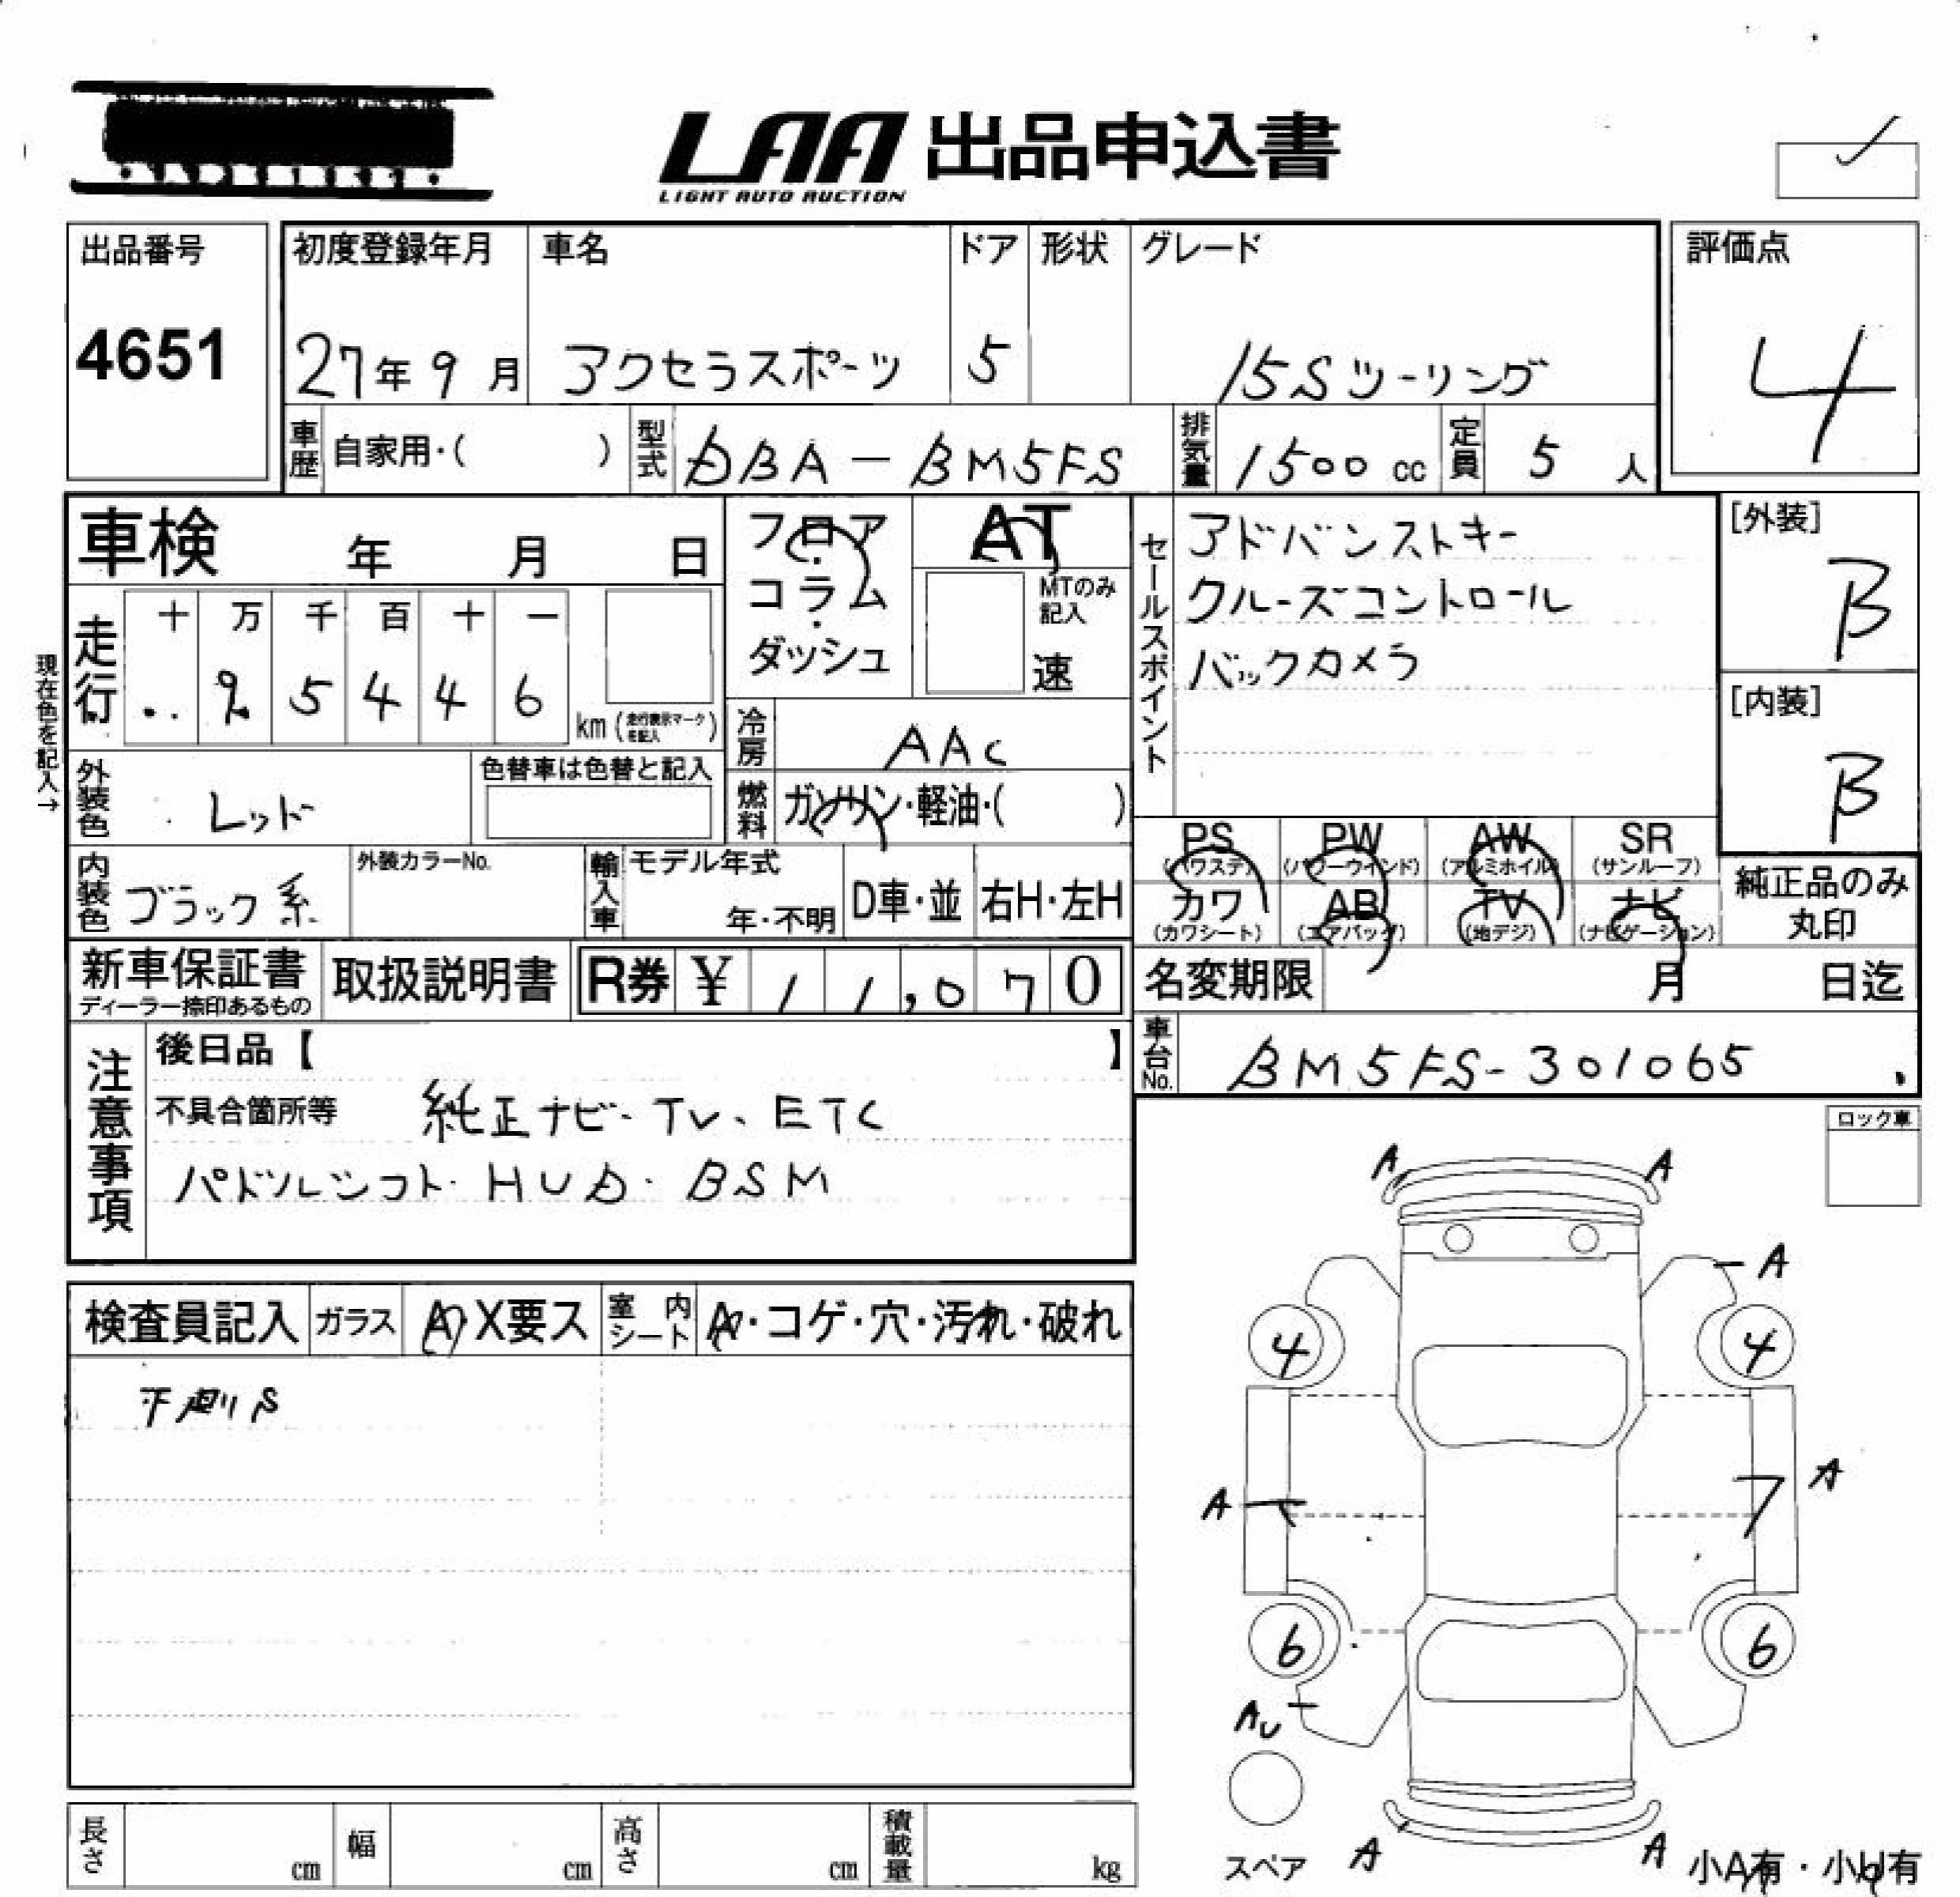 LAA 出品申込書
LIGHT AUTO AUCTION
出品番号
4651
初度登録年月
27年9月
車名
アクセラスポーツ
ドア
5
形状
グレード
15Sツーリング
評価点
4
車歴 自家用・( )
型式 DBA-BM5FS
排気量 1500cc
定員 5人
車検 年 月 日
フロア・コラム・ダッシュ
AT
MTのみ記入
速
セールスポイント
アドバンストキー
クルーズコントロール
バックカメラ
[外装]
B
[内装]
B
現在色を記入→
走行
十 万 千 百 十 一
5 4 4 6
km (走行表示マークを記入)
冷房 AAC
外装色 レッド
色替車は色替と記入
燃料 ガソリン・軽油・( )
PS (パワステ)
PW (パワーウインド)
AW (アルミホイル)
SR (サンルーフ)
カワ (カワシート)
AB (エアバッグ)
TV (地デジ)
ナビ (ナビゲーション)
純正品のみ丸印
内装色 ブラック系
外装カラーNo.
輸入車
モデル年式
年・不明
D車・並
右H・左H
新車保証書
ディーラー捺印あるもの
取扱説明書
R券 ¥11,070
名変期限 月 日迄
車台No. BM5FS-301065
注意事項
後日品【 】
不具合箇所等 純正ナビ・TV、ETC
パドルシフト・HUD・BSM
ロック車
検査員記入
ガラス
A・X要ス
室内シート
A・コゲ・穴・汚れ・破れ
A A
A
4 4
A A
6 6
AU
スペア
A A
小A有・小U有
長さ cm
幅 cm
高さ cm
積載量 kg